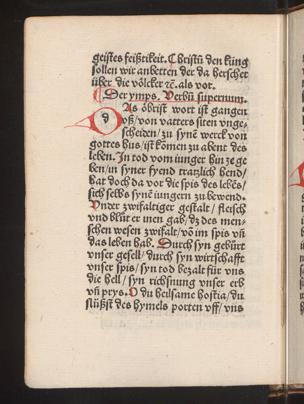 geistes feißtikeit. Christū den küng
sollen wir anbetten der da herschet
über die völcker rc̄. als vor.
¶ Der ymps. Verbū supernum.
DAs öbrist wort ist gangen
vß / von vatters siten vnge⸗
scheiden / zu synē werck von
gottes hus / ist kōmen zu abent des
leben. In tod vom iunger hin ze ge
ben / in syner fyend tratzlich hend /
hat doch da vor die spis des lebēs /
sich selbs synē iungern zu bewend.
Vnder zwifaltiger gestalt / fleisch
vnd blūt er inen gab / dz des men⸗
schen wesen zwifalt / vō im spis vñ
das leben hab. Durch syn gebürt
vnser gesell / durch syn wirtschafft
vnser spis / syn tod bezalt für vns
die hell / syn richßnung vnser erb
vñ prys. O du heilsame hostia / du
slüssst des hymels porten vff / vns